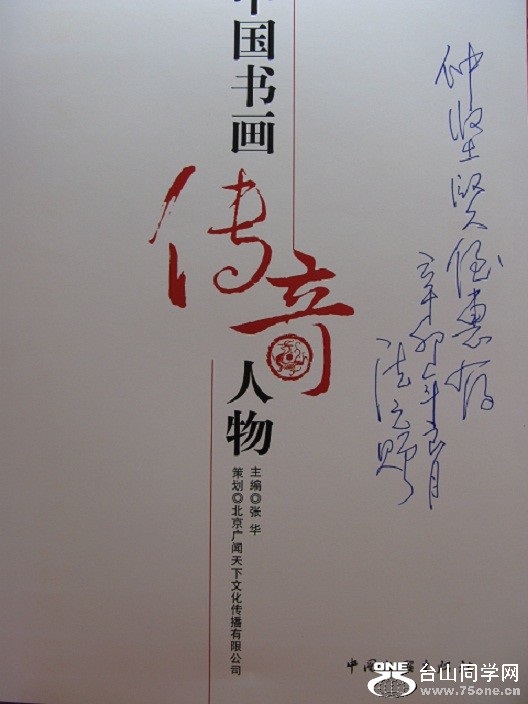 钟坚贤侄惠存
辛卯年月
赠
中国书画
传奇
人物
主编◎张 华
策划◎北京广闻天下文化传播有限公司
中国
ONE
台山同学网
www.75one.cn